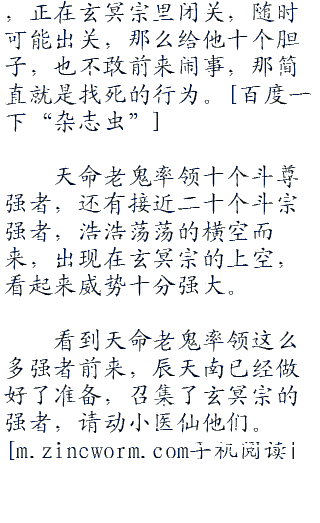 ，正在玄冥宗里闭关，随时
可能出关，那么给他十个胆
子，也不敢前来闹事，那简
直就是找死的行为。[百度一
下“杂志虫”]
天命老鬼率领十个斗尊
强者，还有接近二十个斗宗
强者，浩浩荡荡的横空而
来，出现在玄冥宗的上空，
看起来威势十分强大。
看到天命老鬼率领这么
多强者前来，辰天南已经做
好了准备，召集了玄冥宗的
强者，请动小医仙他们。
[m.zincworm.com手机阅读i